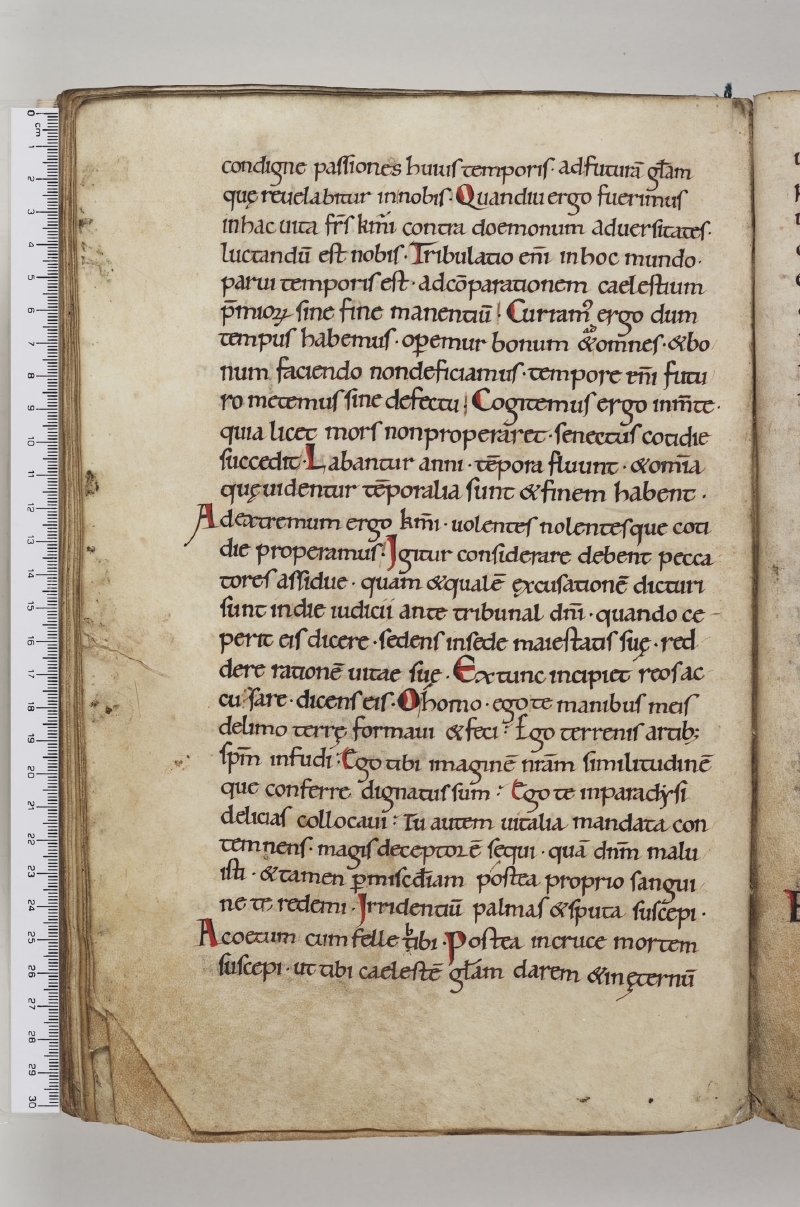 condigne passiones huius temporis · ad futurā gl̄am
quę reuelabitur in nobis · Quandiu ergo fuerimus
in hac uita fr̄s km̄i contra doemonum aduersitates ·
luctandū est nobis · Tribulatio eni̅ in hoc mundo ·
parui temporis est · ad cōparationem caelestium
p̄mioꝝ sine fine manentiū ⁝ Curram᷒ ergo dum
tempus habemus · oꝑemur bonum ab &omnes · &bo
num faciendo non deficiamus · tempore eni̅ futu
ro metemus sine defectu ⁝ Cogitemus ergo in m̄te ·
quia licet mors non properaret · senectus cotidie
succedit · Labantur anni · tēpora fluunt · &om̄ia
quę uidentur tēporalia sunt & finem habent ·
Ad extremum ergo km̄i · uolentes nolentesque coti
die properamus ⁝ Igitur considerare debent pecca
tores assidue · quam & qualē ęxcusationē dicturi
sunt in die iudicii ante tribunal dn̄i · quando ce
perit eis dicere · sedens in sede maiestatis suę · red
dere rationē uitae suę · Ex tunc incipiet reos ac
cusare · dicens eis · O homo · ego te manibus meis
de limo terrę formaui & feci ⁝ Ego terrenis artib;
sp̄m infudi ⁝ Ego tibi imaginē nr̄am similitudinē
que conferre dignatus sum ⁝ Ego te in paradysi
delicias collocaui ⁝ Tu autem uitalia mandata con
temnens · magis deceptorē sequi · quā dn̄m malu
isti · & tamen ꝑ misc̄diam postea proprio sangui
ne te redemi · Irridentiū palmas & sputa suscepi ·
Acoetum cum felle bibi · Postea in cruce mortem
suscepi · ut tibi caelestē gl̄am darem & in ęternū